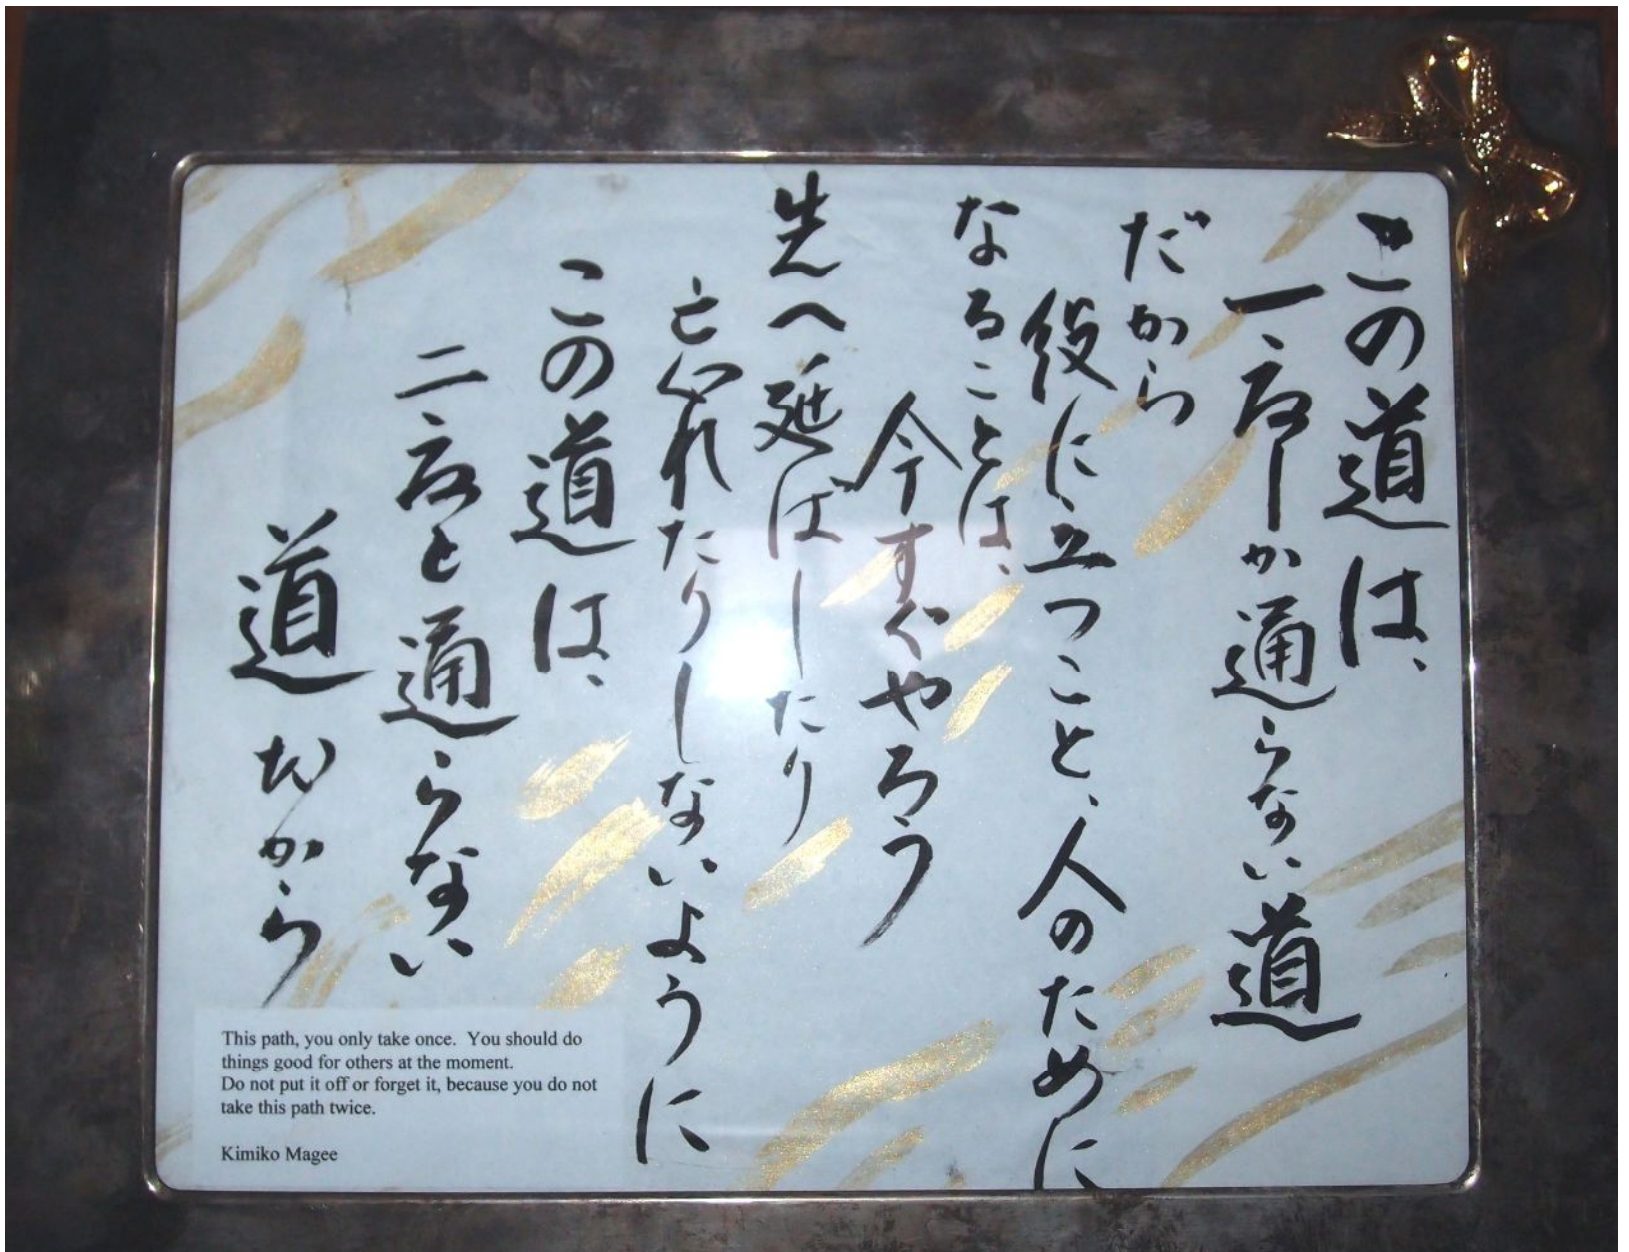 この道は、
一度しか通らない道
だから
役に立つこと、人のために
なることは、
今すぐやろう
先へ延ばしたり
忘れたりしないように
この道は、
二度と通らない
道だから
This path, you only take once. You should do
things good for others at the moment.
Do not put it off or forget it, because you do not
take this path twice.
Kimiko Magee